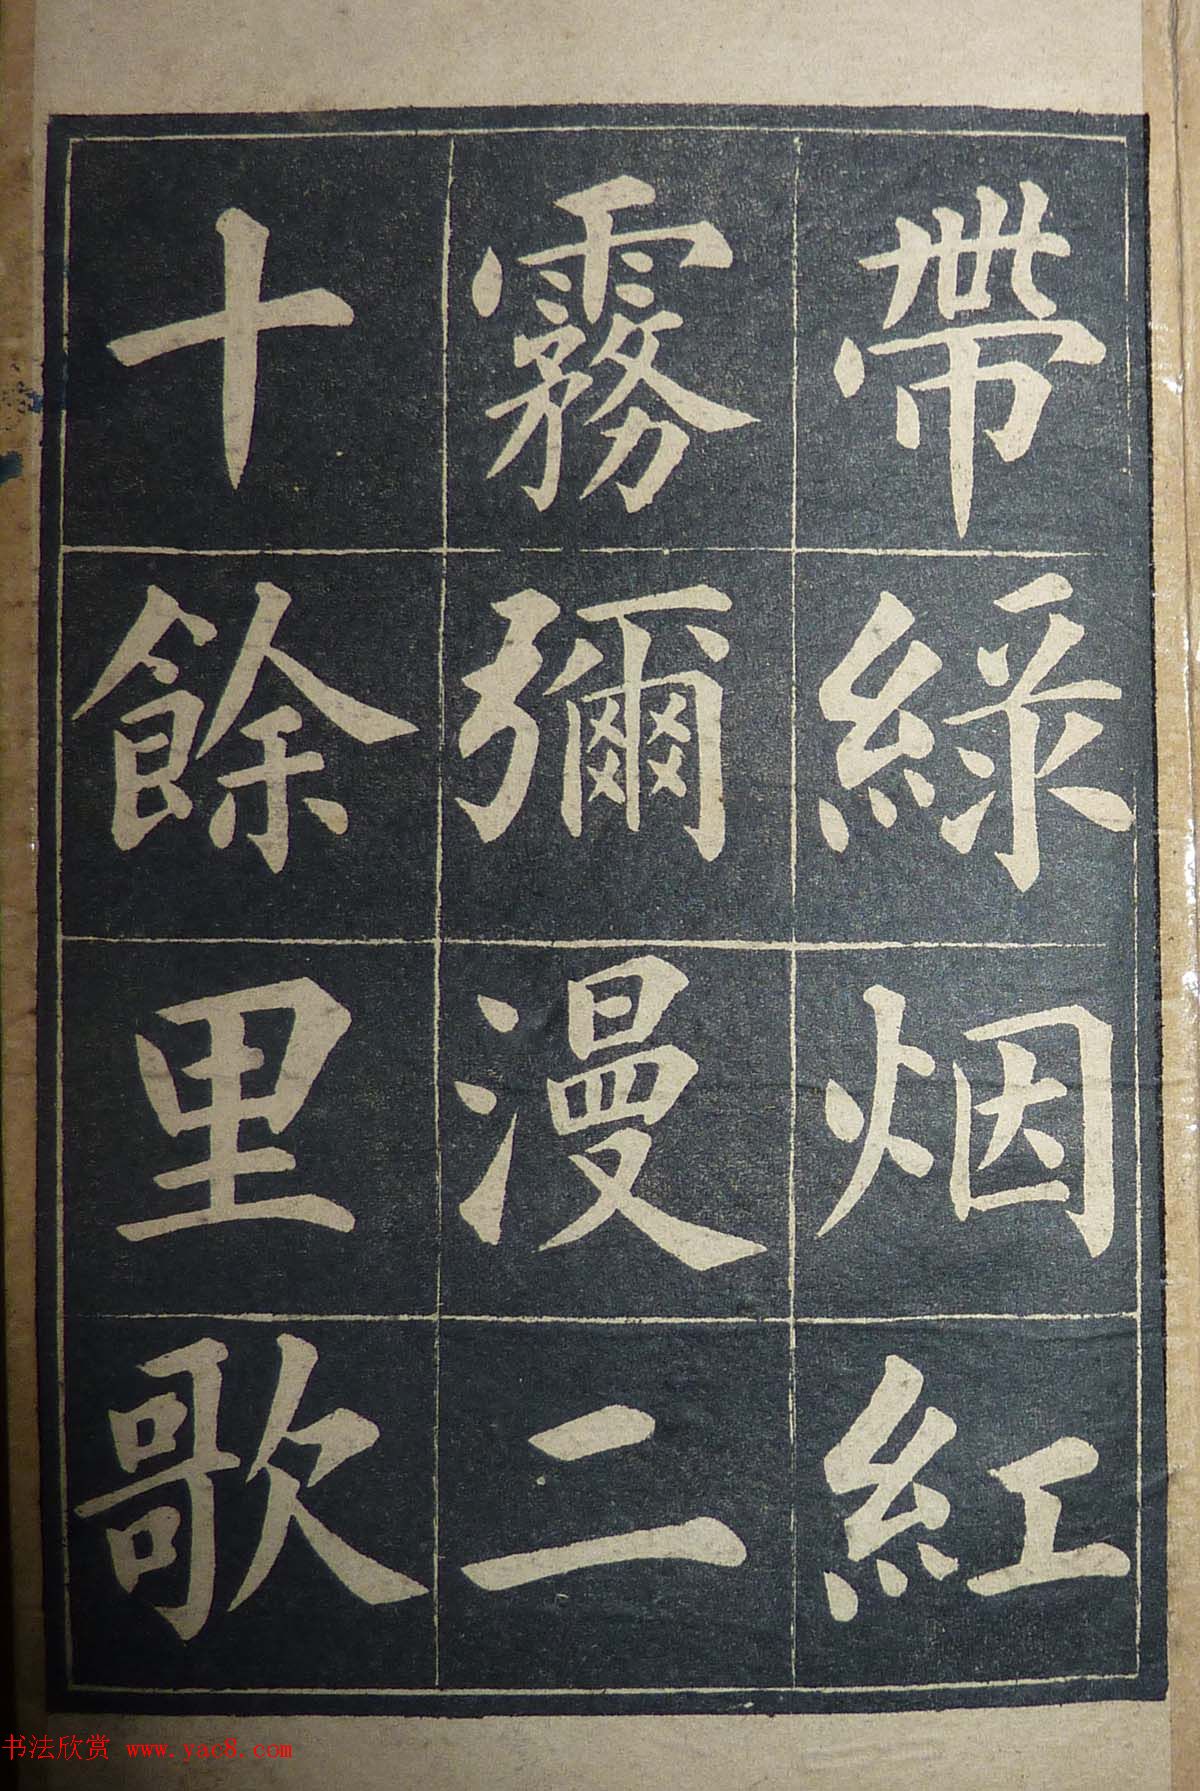 帶綠烟紅
霧彌漫二
十餘里歌
书法欣赏 www.yac8.com